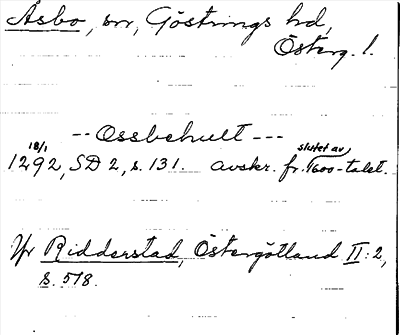 Åsbo, sn, Göstrings hd,
Österg. l.
-- Ossbehult ---
18/1 slutet av
1292, SD 2, s. 131. avskr. fr. 1600-talet.
Jfr Ridderstad, Östergötland II:2,
s. 518.